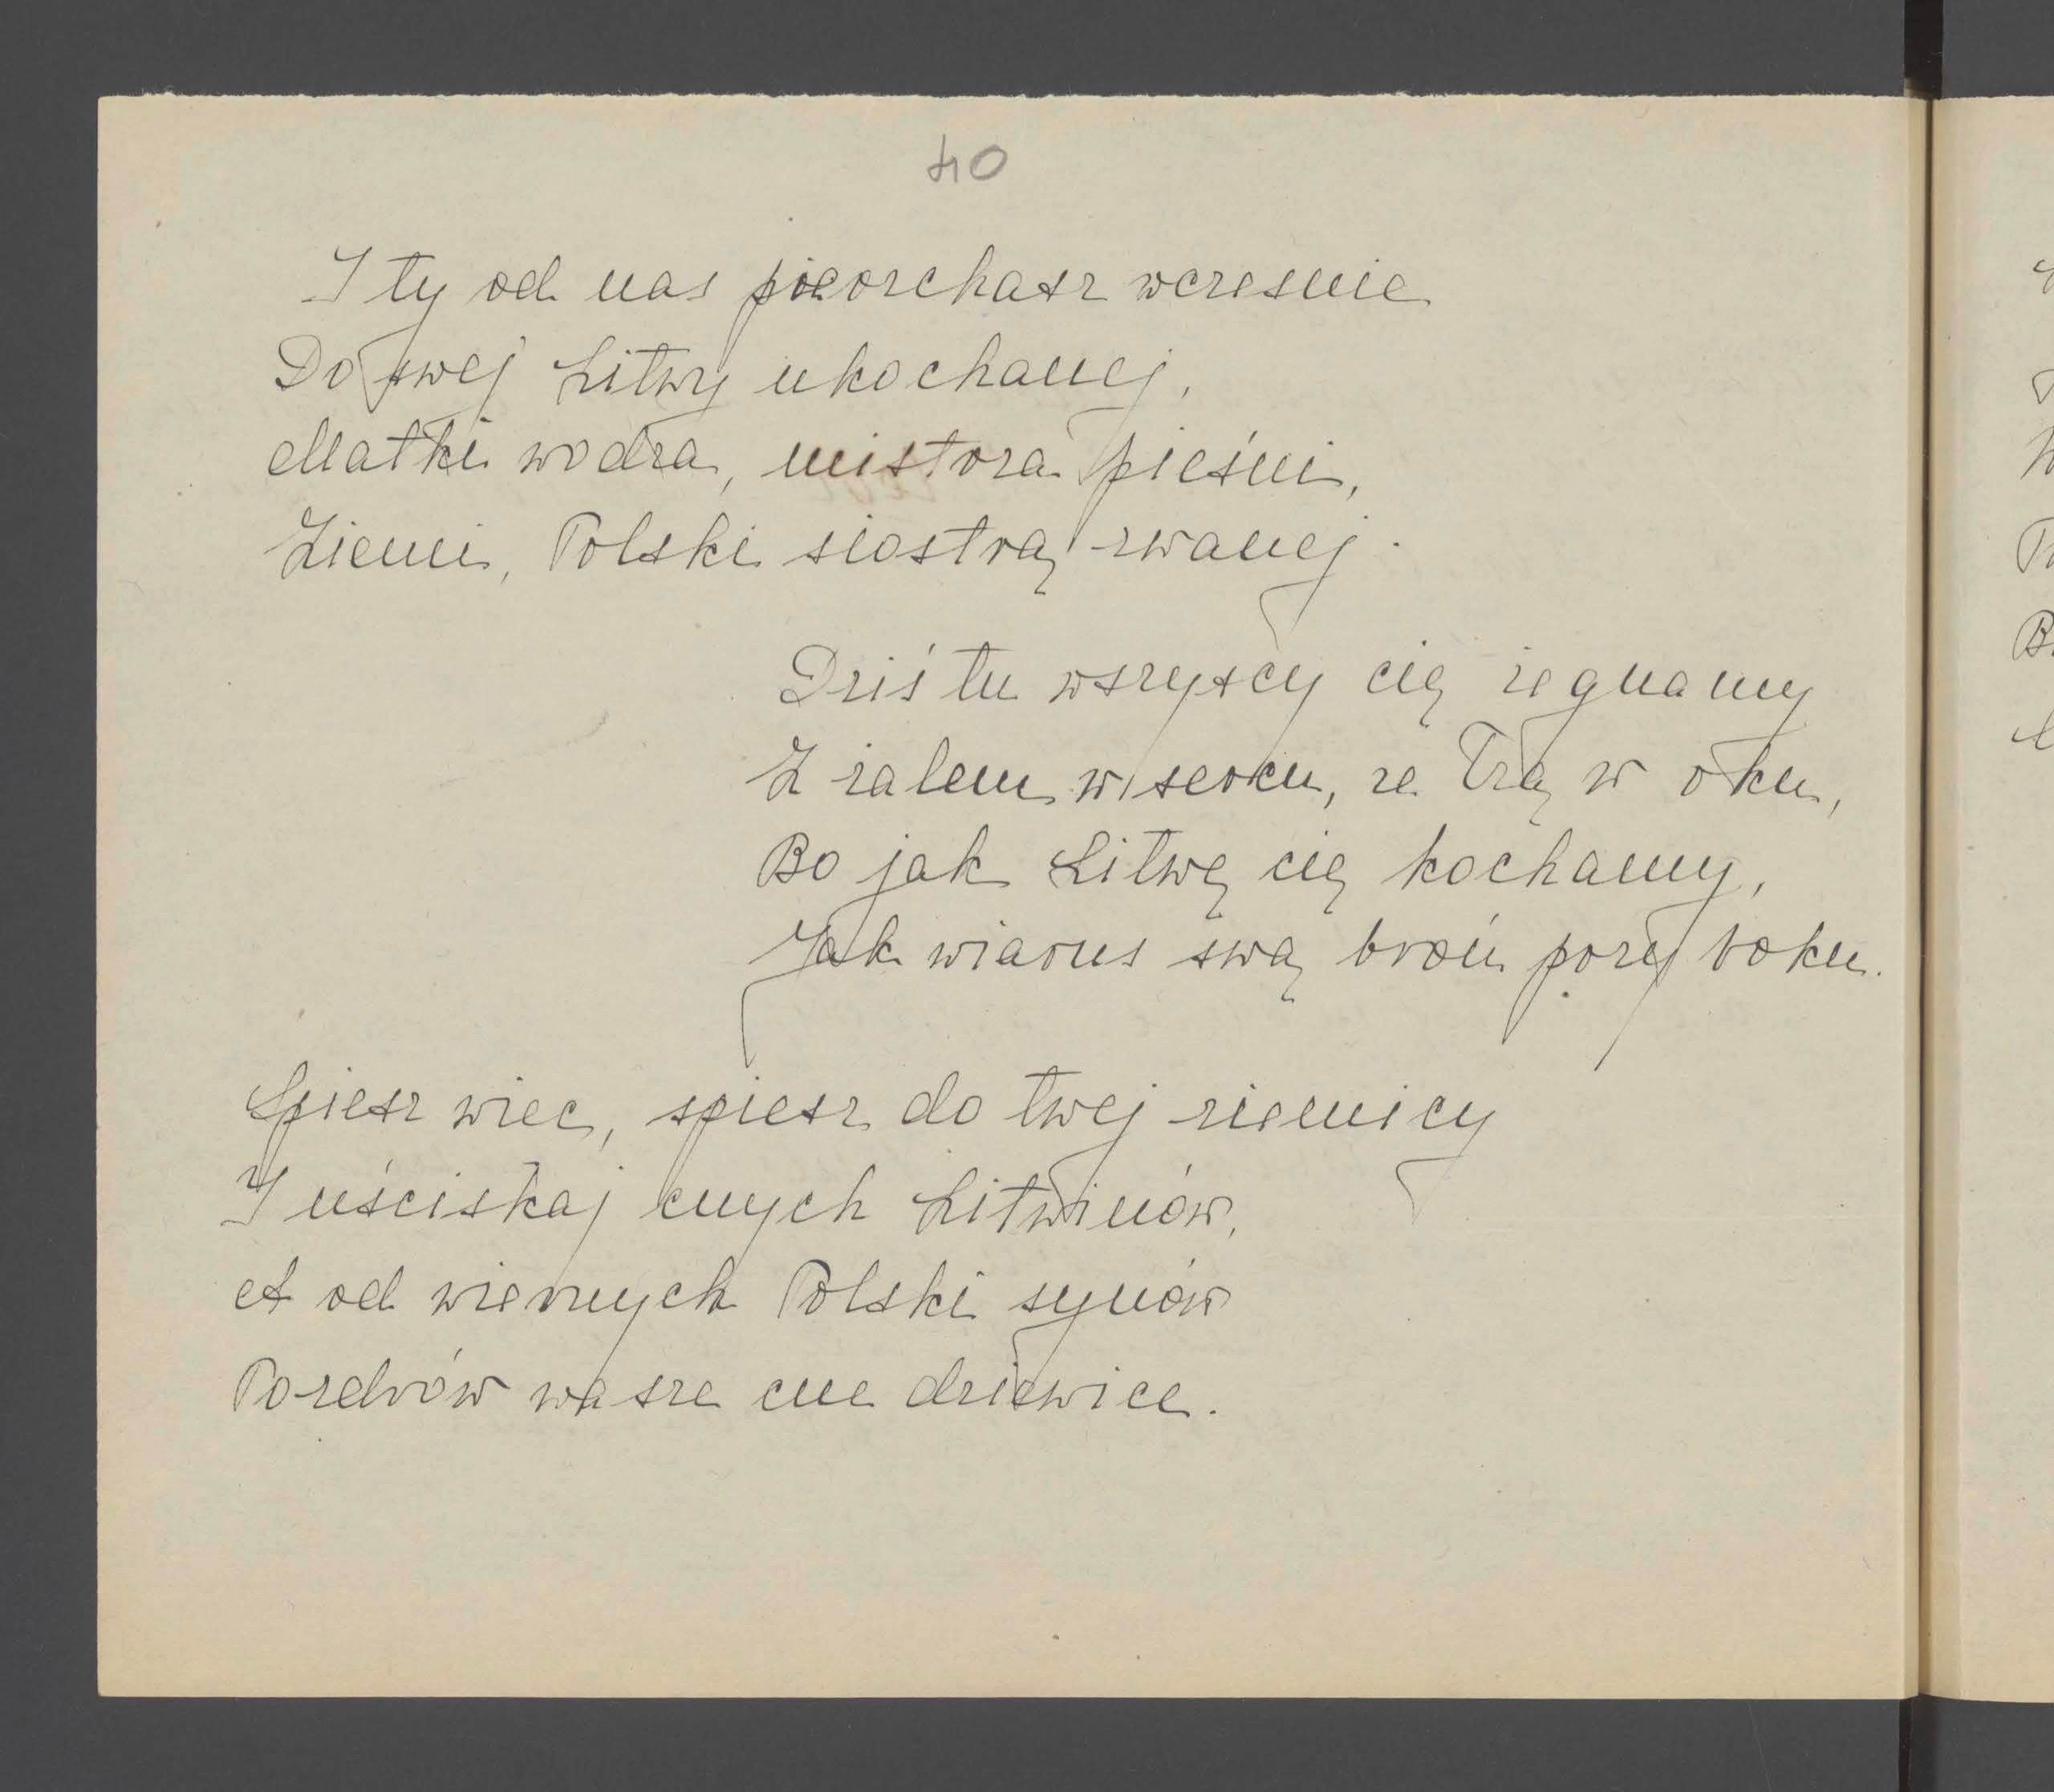 40
I ty od nas pierzchasz wcześnie
Do swej Litwy ukochanej,
Matki wodza, mistrza pieśni,
Ziemi, Polski siostrą zwanej.
Dziś tu wszyscy cię żegnamy
Z żalem w sercu, ze łzą w oku,
Bo jak Litwę cię kochamy,
Jak wiarus swą broń przy boku.
Spiesz wiec, spiesz do twej ziemicy
I uściskaj cnych Litwinów,
A od wiernych Polski synów
Pozdrów wasze cne dziewice.